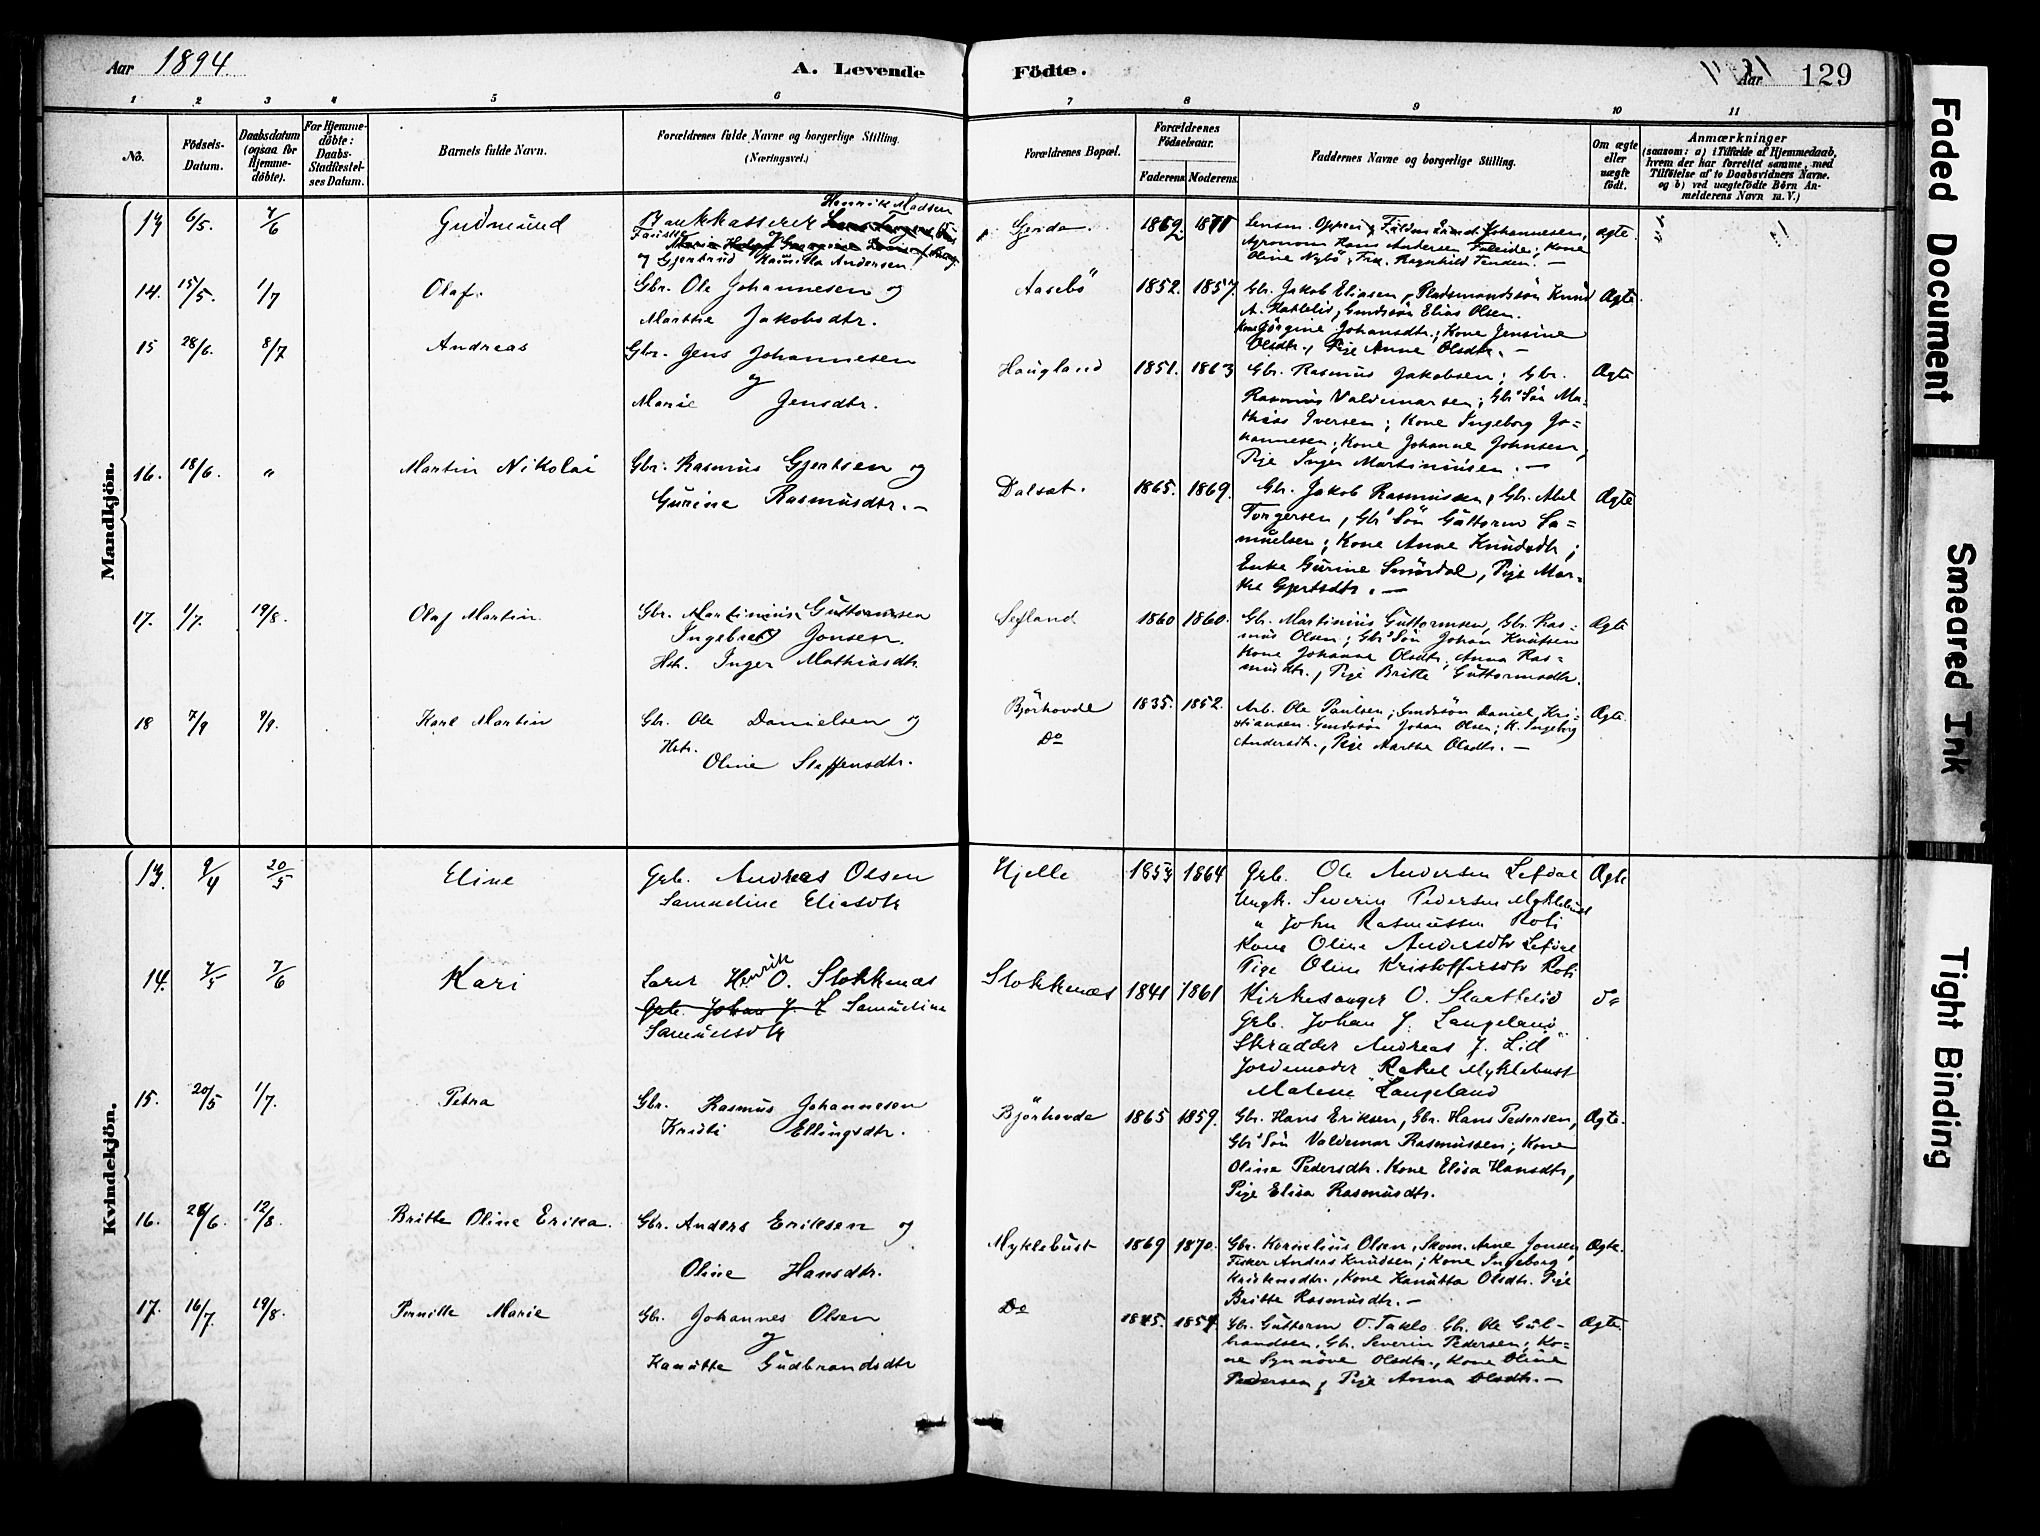 Aar 1894.
A. Levende
Födte.
Aar
129
1 2 3 4 5 6 7 8 9 10 11
No.
Födsels-Datum.
Daabsdatum (ogsaa for Hjemme-döbte).
For Hjemme-döbte: Daabs-Stadfæstel-ses Datum.
Barnets fulde Navn.
Forældrenes fulde Navne og borgerlige Stilling. (Næringsvei.)
Forældrenes Bopæl.
Forældrenes Födselsaar.
Faderens Moderens
Faddernes Navne og borgerlige Stilling.
Om ægte eller uægte födt.
Anmærkninger
(saasom: a) i Tilfælde af Hjemmedaab, hvem der har forrettet samme, med Tilföielse af to Daabsvidners Navne. og b) ved uægtefödte Börn An-melderens Navn m. V.)
Mandkjön.
13 6/5 7/6 Gudmund
Henrik Madsen
Bankkasserer
Fauske
og Gjertrud Kamilla Andersen
1862 1871
Johannesen,
Agronom Hans Andersen Faleide; Kone
Oline Nybö, Frk. Ragnhild Tenden. —
ægte.
14. 15/5. 1/7 Olaf.
Gbr. Ole Johannesen og
Marthe Jakobsdtr.
Aasebö 1852. 1857.
Gbr. Jakob Eliasen, Pladsmandssön Knud
A. Kattelid, Gmdssön Elias Olsen.
Kone Jörgine Johansdtr., Kone Jensine
Olsdtr., Pige Anne Olsdtr. —
Ægte
15 28/6. 8/7 Andreas
Gbr. Jens Johannesen
og
Marie Jensdtr.
Haugland 1851. 1863
Gbr. Rasmus Jakobsen; Gbr.
Rasmus Valdemarsen; Gbr Sön Ma-
thias Iversen; Kone Ingeborg Jo=
hannesen; Kone Johanne Johnsen,
Pije Inger Martinusen. —
Ægte
16. 18/6. " Martin Nikolai
Gbr. Rasmus Gjertsen og
Gurine Rasmusdtr. —
Dalsat. 1865. 1869.
Gbr. Jakob Rasmussen, Gbr. Abel
Torgersen, Gbr Sön Guttorm Sa=
muelsen; Kone Anne Knudsdtr;
Enke Gurine Smördal, Pije Mar-
the Gjertsdtr. —
Ægte
17. 1/7. 19/8. Olaf Martin
Gbr. Martinius Guttormsen
Ingebregt Jonsen.
Hst. Inger Mathiasdtr.
Sefland 1860 1860.
Gbr. Martinius Guttormsen, Gbr. Ras-
mus Olsen; Gbr Sön Johan Knutsen
Kone Johanne Olsdtr., Anna Ras-
musdtr., Pije Britte Guttormsdtr.
Ægte
18 7/9 9/9. Karl Martin
Gbr. Ole Danielsen og
Hstr.
Oline Steffensdtr.
Björhovde 1835. 1852.
Do
Arb. Ole Paulsen; Gmdssön Daniel Kri-
stiansen. Gmdssön Johan Olsen; K. Ingeborg
Andersdtr., Pije Marthe Olsdtr. —
Ægte.
Kvindekjön.
13. 9/4 20/5 Eline
Grb. Andreas Olsen
Samueline Eliasdtr
Hjelle 1853 1864
Grb. Ole Andersen Lefdal
Ungk. Severin Pedersen Myklebust
" John Rasmussen Roti
Kone Oline Andersdtr Lefdal
Pige Oline Kristoffersdtr Roti
Ægte
14. 7/5 7/6 Kari
Lærer Henrik O. Stokkenæs
Grb. Johan J. L Samueline
Samuelsdtr
Stokkenæs 1841 1861
Kirkesanger O. Staattelid
Grb. Johan J. Langeland
Skrædder Andreas J. Lid
Jordemoder Rakel Myklebust
Malene Langeland
do
15. 20/5 1/7. Petra
Gbr. Rasmus Johannesen
Kristi Ellingsdtr.
Björhovde 1865 1859.
Gbr. Hans Eriksen, Gbr. Hans Pedersen,
Gbr Sön Valdemar Rasmussen; Kone
Oline Pedersdtr. Kone Elisa Hansdtr,
Pije Elisa Rasmusdtr.
Ægte.
16. 28/6. 12/8. Britte Oline Erika.
Gbr. Anders Eriksen og
Oline Hansdtr.
Myklebust 1869 1870.
Gbr. Kornelius Olsen, Skom. Arne Jonsen,
Fisker Anders Knudsen; Kone Ingeborg
Kristensdtr., Kone Kanutta Olsdtr. Pije
Britte Rasmusdtr. —
Ægte.
17. 16/7. 19/8. Pernille Marie
Gbr. Johannes Olsen
og
Kanutte Gudbrandsdtr
Do 1845. 1854.
Gbr. Guttorm O. Taklo. Gbr. Ole Gul-
brandsen, Gbr. Severin Pedersen; Ko-
ne Synnöve Olsdtr., Kone Oline
Pedersen, Pije Anna Olsdtr. —
Ægte.
Faded Document
Smeared Ink
Tight Binding